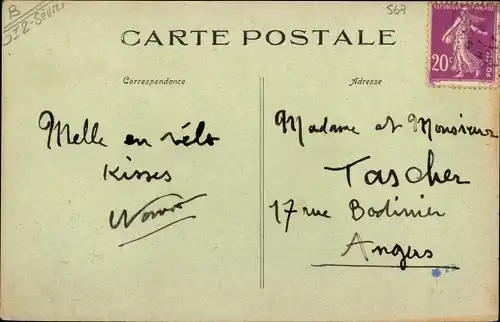 B
567
CARTE POSTALE
RÉPUBLIQUE FRANÇAISE
20c
POSTES
Correspondance
Adresse
Melle en vélo
Kisses
Madame et Monsieur
Tascher
17 rue Bodinier
Angers